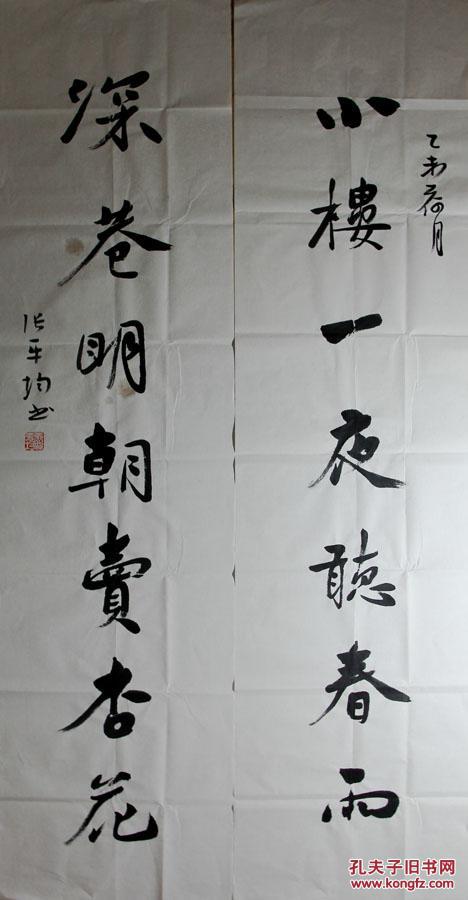 乙未荷月
小樓一夜聽春雨
深巷明朝賣杏花
张平均书
孔夫子旧书网
www.kongfz.com